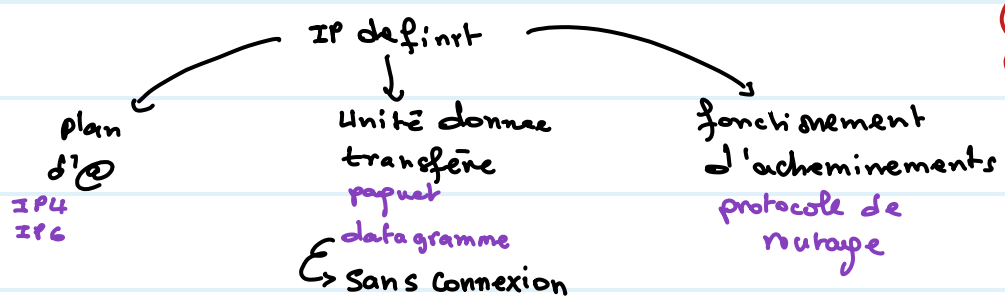 IP definit
plan
d'@
IP4
IP6
Unité donnee
transfère
paquet
datagramme
Sans Connexion
fonctionement
d'acheminements
protocole de
routage